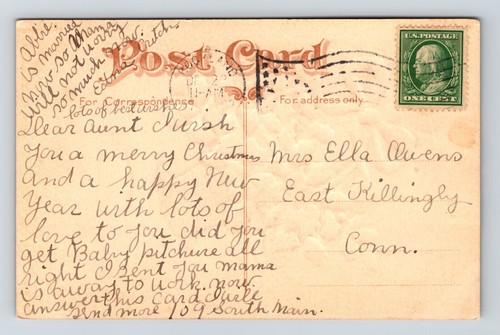 Allie
is married
now so Mama
will not worry
so much now.
Post Card
U.S. POSTAGE
ONE CENT
For Correspondence
For address only.
lots of best wishes
Dear Aunt I wish
You a merry Christmas
and a happy New
Year with lots of
love to you did you
get Baby pitchure all
right I sent you mama
is away to work now.
answer this card I will
send more 109 South Main.
Mrs Ella Owens
East Killingly
Conn.